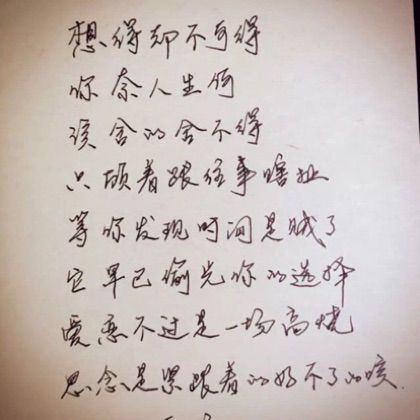 想得却不可得
你奈人生何
该舍的舍不得
只顾着跟往事瞎扯
等你发现时间是贼了
它早已偷光你的选择
爱恋不过是一场高烧
思念是紧跟着的好不了的咳